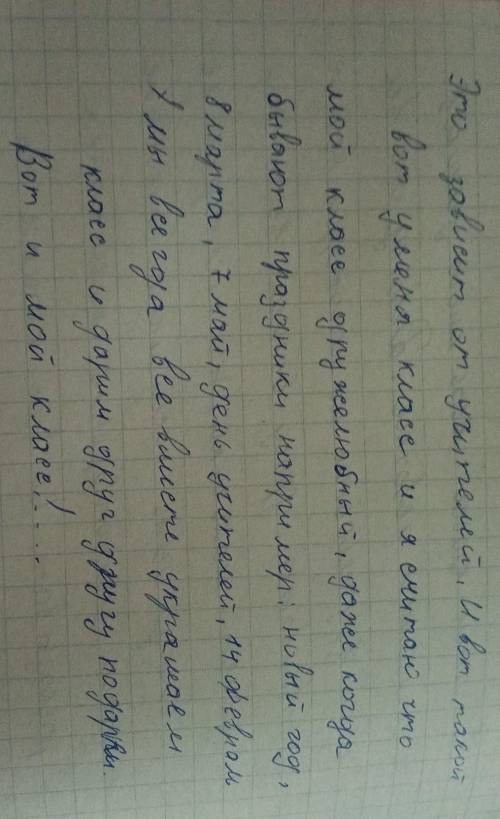 Это зависит от учителей, И вот такой
вот у меня класс и я считаю что
мой класс дружелюбный, даже когда
бывают праздники например: новый год,
8 марта, 7 май, день учителей, 14 феврал
7 мы все года все вместе украшаем
класс и дарим друг другу подарки.
Вот и мой класс!....